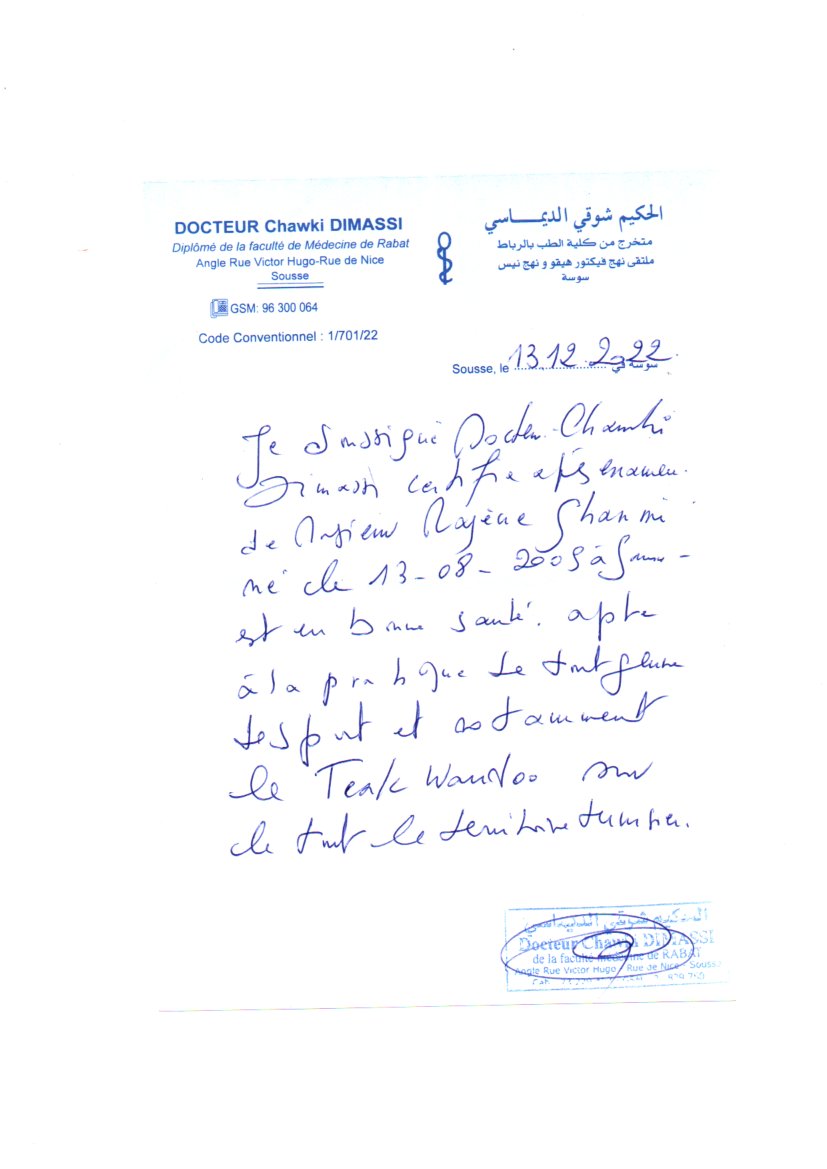 DOCTEUR Chawki DIMASSI
Diplômé de la faculté de Médecine de Rabat
Angle Rue Victor Hugo-Rue de Nice
Sousse
GSM: 96 300 064
Code Conventionnel : 1/701/22
الحكيم شوقي الديماسي
متخرج من كلية الطب بالرباط
ملتقى نهج فيكتور هيقو و نهج نيس
سوسة
Sousse, le 13.12.2022 سوسة في
Je Soussigné Docteur Chawki
Dimassi certifie après examen
de Monsieur Ghanmi
né le 13-08-2005 à Sousse -
est en bonne santé. apte
à la pratique de tout genre
de sport et notamment
le Teak Wandoo sur
le tout le territoire tunisien.
الحكيم شوقي الديماسي
Docteur Chawki DIMASSI
de la faculté médecine de RABAT
Angle Rue Victor Hugo - Rue de Nice - Sousse